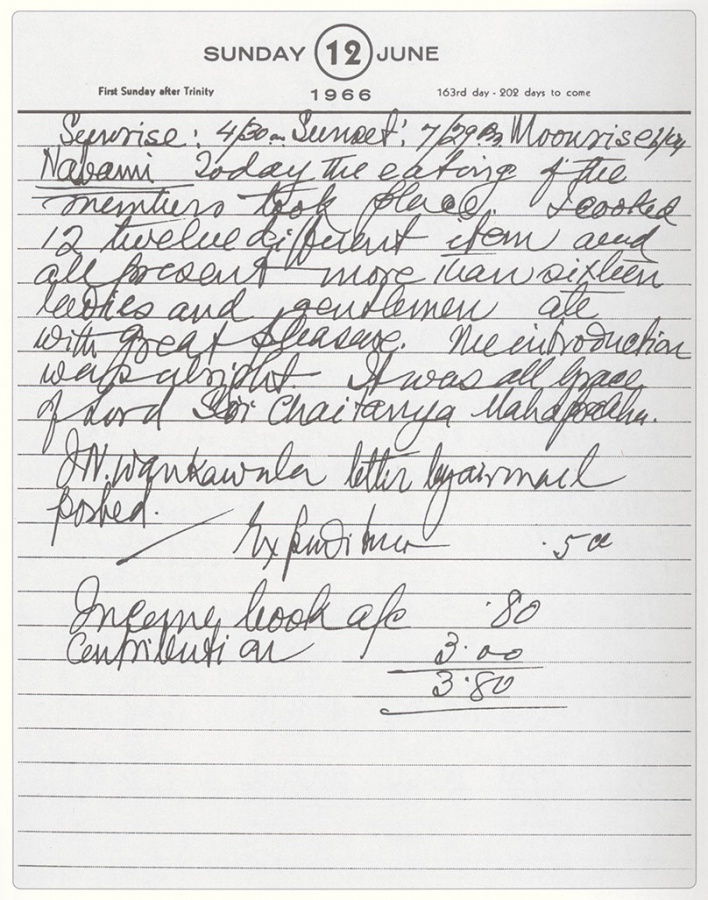 SUNDAY 12 JUNE
First Sunday after Trinity 1966 163rd day - 202 days to come
Sunrise: 4/30 am Sunset: 7/29 Pm Moonrise
Nabami Today the eating of the
members took place. I cooked
12 twelve different item and
all present more than sixteen
ladies and gentlemen ate
with great pleasure. The introduction
was alright. It was all grace
of Lord Sri Chaitanya Mahaprabhu.
J.N. Wankawala letter by airmail
posted.
Expenditure .50
Income book a/c .80
Contribution 3.00
3.80